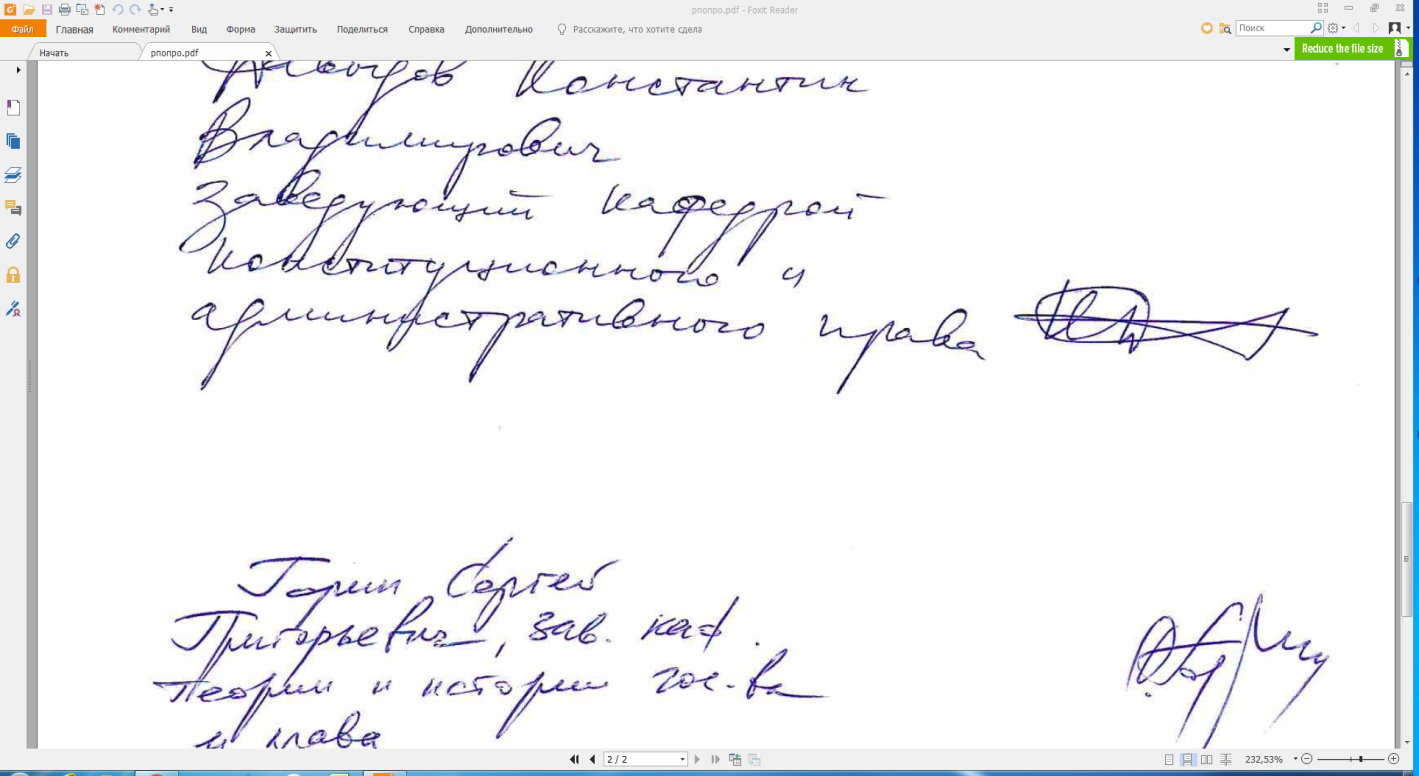 pnonpo.pdf - Foxit Reader
Файл Главная Комментарий Вид Форма Защитить Поделиться Справка Дополнительно Расскажите, что хотите сделать Поиск
Начать pnonpo.pdf x Reduce the file size
Константин
Владимирович
Заведующий кафедрой
Конституционного и
административного права
Горин Сергей
Григорьевич, зав. каф.
Теории и истории гос-ва
и права
2 / 2 232,53%